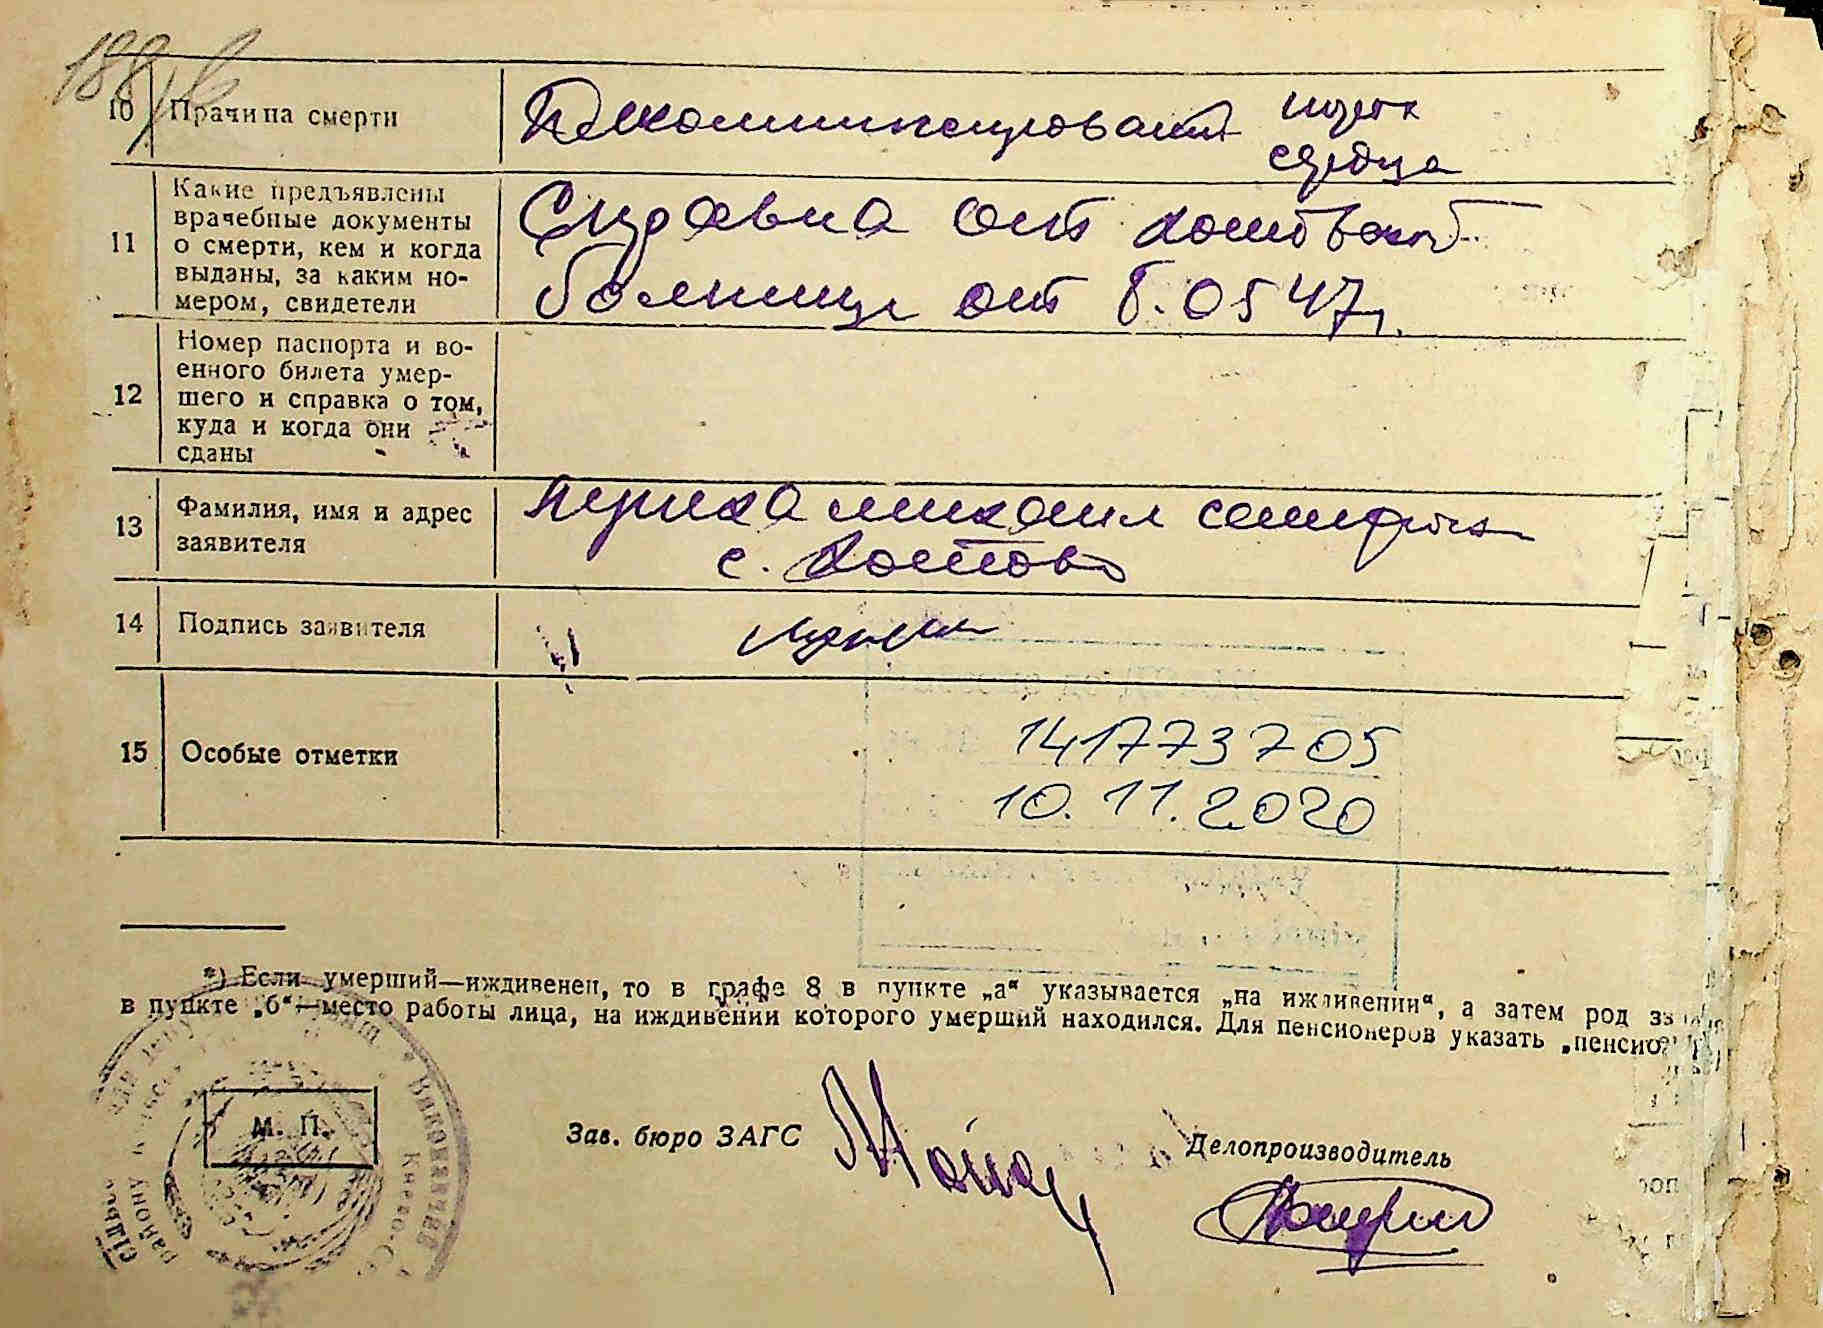 188
10 Причина смерти
порок
сердца
11 Какие предъявлены
врачебные документы
о смерти, кем и когда
выданы, за каким но-
мером, свидетели
Справка от
больницы от 8.05 47г.
12 Номер паспорта и во-
енного билета умер-
шего и справка о том,
куда и когда они
сданы
13 Фамилия, имя и адрес
заявителя
михаил
с. Хотово
14 Подпись заявителя
15 Особые отметки
141773705
10.11.2020
*) Если умерший—иждивенец, то в графе 8 в пункте „а“ указывается „на иждивении“, а затем род
в пункте „б“—место работы лица, на иждивении которого умерший находился. Для пенсионеров указать
М. П.
Зав. бюро ЗАГС
Делопроизводитель